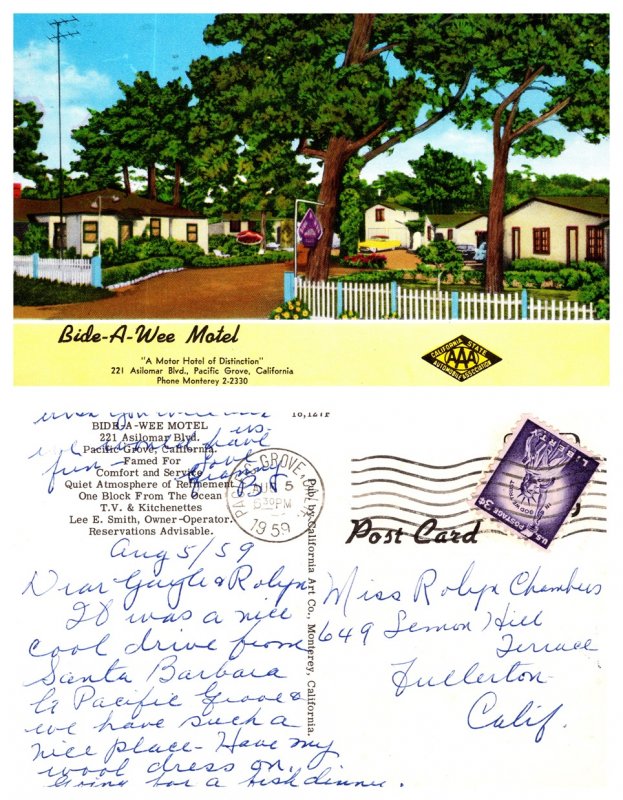 Bide-A-Wee Motel
"A Motor Hotel of Distinction"
221 Asilomar Blvd., Pacific Grove, California
Phone Monterey 2-2330
CALIFORNIA STATE
AAA
AUTOMOBILE ASSOCIATION
you were
us.
we would have
fun
Love
Granny
B
BIDE-A-WEE MOTEL
221 Asilomar Blvd.
Pacific Grove, California.
Famed For
Comfort and Service
Quiet Atmosphere of Refinement
One Block From The Ocean
T.V. & Kitchenettes
Lee E. Smith, Owner-Operator.
Reservations Advisable.
PACIFIC GROVE
AUG 5
530PM
1959
Pub. by California Art Co., Monterey, California.
LIBERTY
IN GOD WE TRUST
U.S. POSTAGE 3¢
Post Card
Aug 5/59
Dear Gayle & Robyn
It was a nice
cool drive from
Santa Barbara
to Pacific Grove &
we have such a
nice place - Have my
wool dress on.
Going for a fish dinner.
Miss Robyn Chambers
649 Lemon Hill
Terrace
Fullerton
Calif.